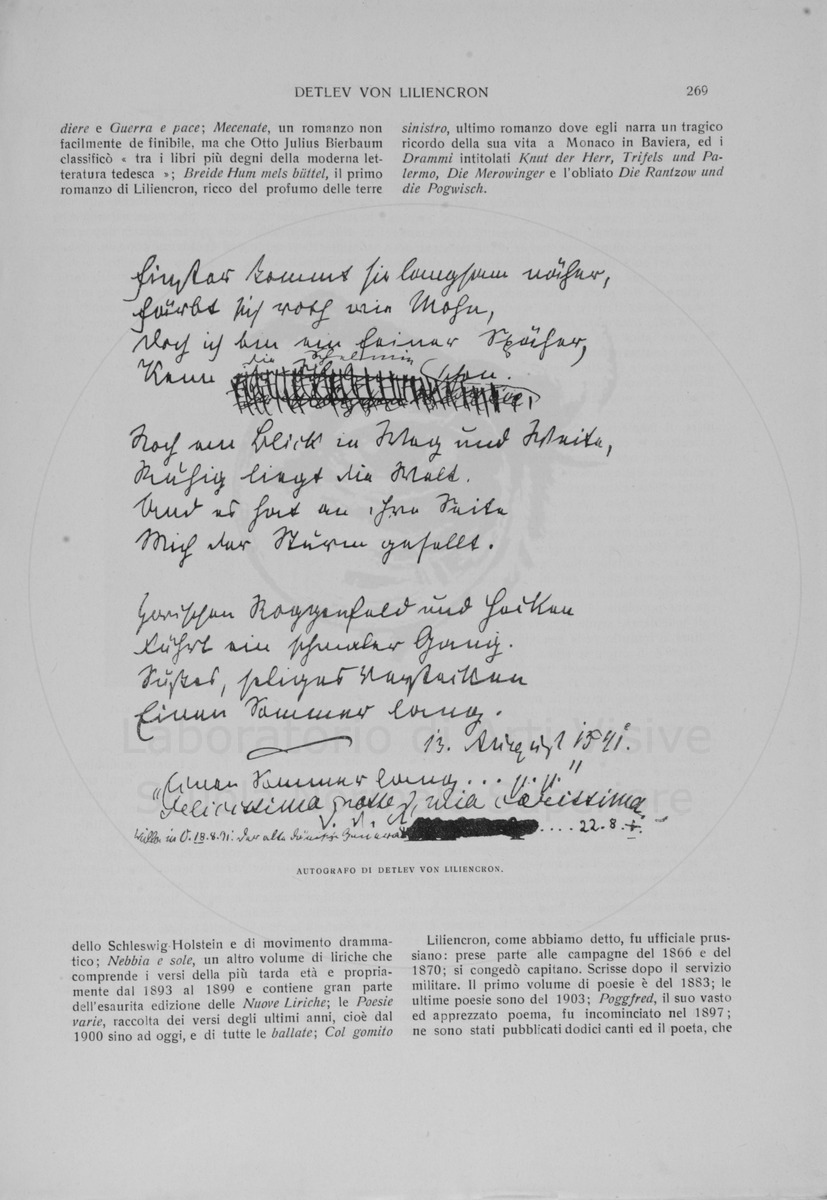 DETLEV VON LILIENCRON 269
diere e Guerra e pace; Mecenate, un romanzo non
facilmente de finibile, ma che Otto Julius Bierbaum
classificò « tra i libri più degni della moderna let-
teratura tedesca »; Breide Hum mels büttel, il primo
romanzo di Liliencron, ricco del profumo delle terre
sinistro, ultimo romanzo dove egli narra un tragico
ricordo della sua vita a Monaco in Baviera, ed i
Drammi intitolati Knut der Herr, Trifels und Pa-
lermo, Die Merowinger e l'obliato Die Rantzow und
die Pogwisch.
kommt sie langsam näher,
Färbt sich roth wie Mohn,
Doch ich bin ein feiner Späher,
die Schelmin
Kenn schon.
Noch ein Blick in Weg und Weite,
Ruhig liegt die Welt.
Und es hat an ihre Seite
Mich der Sturm gesellt.
Zwischen Roggenfeld und Hecken
Führt ein schmaler Gang.
Süßes, seliges Verstecken
Einen Sommer lang.
13. August
"Einen Sommer lang...
Felicissima notte, mia Carissima
der alte .... 22.8.
AUTOGRAFO DI DETLEV VON LILIENCRON.
dello Schleswig-Holstein e di movimento dramma-
tico; Nebbia e sole, un altro volume di liriche che
comprende i versi della più tarda età e propria-
mente dal 1893 al 1899 e contiene gran parte
dell'esaurita edizione delle Nuove Liriche; le Poesie
varie, raccolta dei versi degli ultimi anni, cioè dal
1900 sino ad oggi, e di tutte le ballate; Col gomito
Liliencron, come abbiamo detto, fu ufficiale prus-
siano: prese parte alle campagne del 1866 e del
1870; si congedò capitano. Scrisse dopo il servizio
militare. Il primo volume di poesie è del 1883; le
ultime poesie sono del 1903; Poggfred, il suo vasto
ed apprezzato poema, fu incominciato nel 1897;
ne sono stati pubblicati dodici canti ed il poeta, che
Laboratorio di Arti Visive